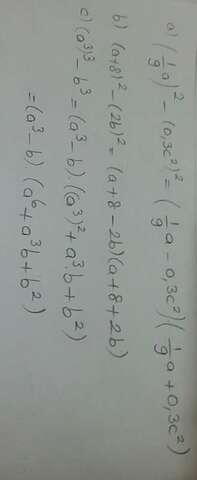 a) (1/9 a)² - (0,3c²)² = (1/9 a - 0,3c²)(1/9 a + 0,3c²)
b) (a+8)² - (2b)² = (a+8-2b)(a+8+2b)
c) (a³)³ - b³ = (a³-b).((a³)² + a³.b + b²)
= (a³-b) (a⁶ + a³b + b²)